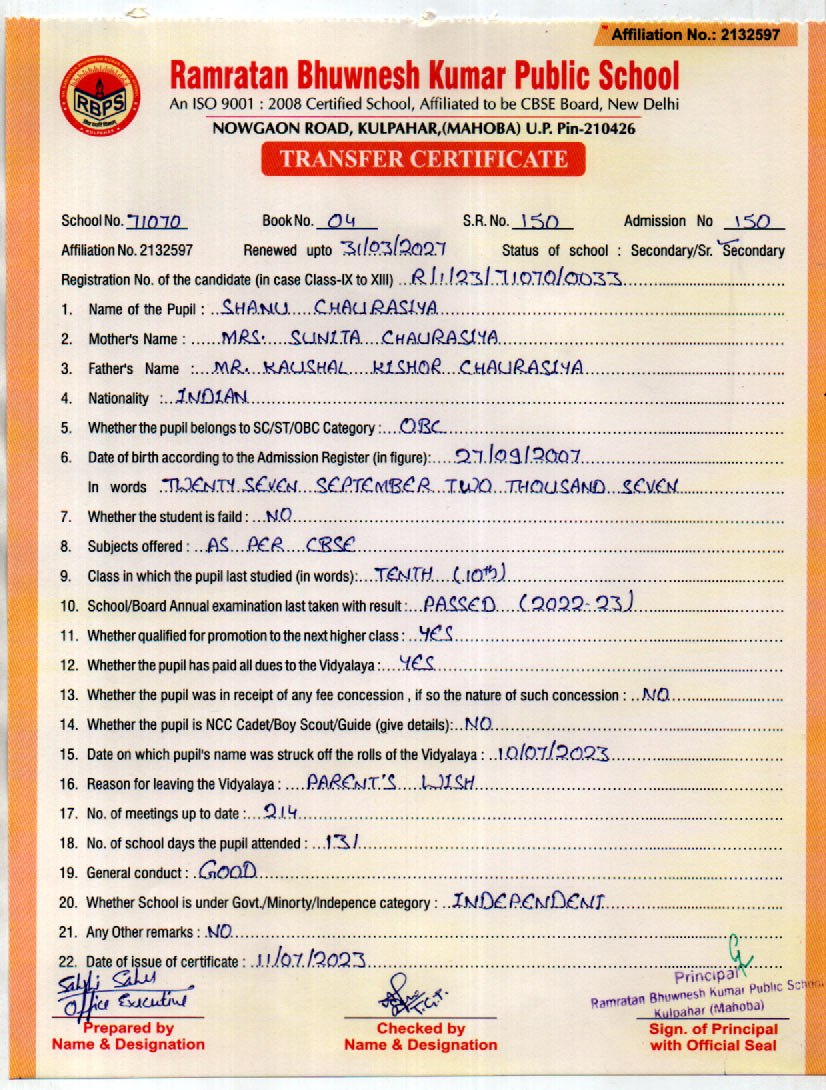 Affiliation No.: 2132597
RBPS
KULPAHAR
Ramratan Bhuwnesh Kumar Public School
An ISO 9001 : 2008 Certified School, Affiliated to be CBSE Board, New Delhi
NOWGAON ROAD, KULPAHAR,(MAHOBA) U.P. Pin-210426
TRANSFER CERTIFICATE
School No. 71070 Book No. 04 S.R. No. 150 Admission No 150
Affiliation No. 2132597 Renewed upto 31/03/2027 Status of school : Secondary/Sr. Secondary
Registration No. of the candidate (in case Class-IX to XIII) R/1/23/71070/0033
1. Name of the Pupil : SHANU CHAURASIYA
2. Mother's Name : MRS. SUNITA CHAURASIYA
3. Father's Name : MR. KAUSHAL KISHOR CHAURASIYA
4. Nationality : INDIAN
5. Whether the pupil belongs to SC/ST/OBC Category : OBC
6. Date of birth according to the Admission Register (in figure): 27/09/2007
In words TWENTY SEVEN SEPTEMBER TWO THOUSAND SEVEN
7. Whether the student is faild : NO
8. Subjects offered : AS PER CBSE
9. Class in which the pupil last studied (in words): TENTH (10th)
10. School/Board Annual examination last taken with result : PASSED (2022-23)
11. Whether qualified for promotion to the next higher class : YES
12. Whether the pupil has paid all dues to the Vidyalaya : YES
13. Whether the pupil was in receipt of any fee concession , if so the nature of such concession : NO
14. Whether the pupil is NCC Cadet/Boy Scout/Guide (give details): NO
15. Date on which pupil's name was struck off the rolls of the Vidyalaya : 10/07/2023
16. Reason for leaving the Vidyalaya : PARENT'S WISH
17. No. of meetings up to date : 214
18. No. of school days the pupil attended : 131
19. General conduct : GOOD
20. Whether School is under Govt./Minorty/Indepence category : INDEPENDENT
21. Any Other remarks : NO
22. Date of issue of certificate : 11/07/2023
Office Executive
T.G.T.
Principal
Ramratan Bhuwnesh Kumar Public School
Kulpahar (Mahoba)
Prepared by Checked by Sign. of Principal
Name & Designation Name & Designation with Official Seal